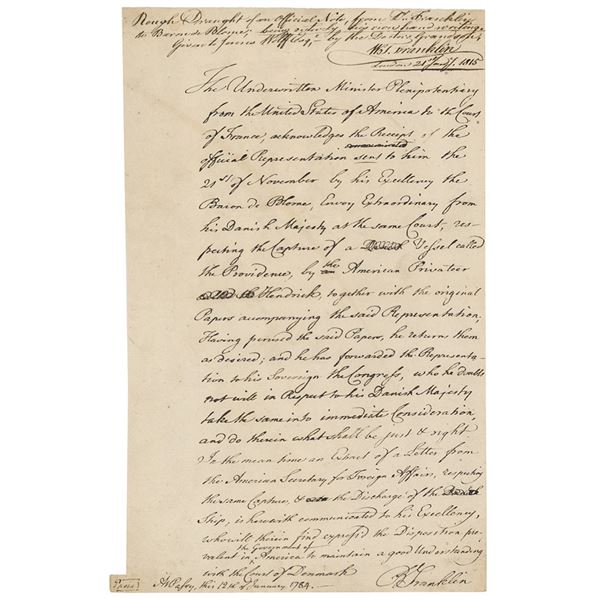 Rough Draught of an Official Note, from Dr. Franklin
to Baron de Blome; being entirely his own hand writing
Given to James Esqr. by the Doctors Grandson
Wm. T. Franklin
London 21 1815
The Underwritten Minister Plenipotentiary
from the United States of America to the Court
of France, acknowledges the Receipt of the
communicated
official Representation sent to him the
21st of November by his Excellency the
Baron de Blome, Envoy Extraordinary from
his Danish Majesty at the same Court, res-
pecting the Capture of a Danish Vessel called
the
the Providence, by an American Privateer
Hendrick, together with the original
Papers accompanying the said Representation.
Having perused the said Papers, he returns them
as desired; and he has forwarded the Representa-
tion to his Sovereign the Congress, who he doubts
not will in Respect to his Danish Majesty
take the same into immediate Consideration,
and do therein what shall be just & right
In the mean time an Extract of a Letter from
the American Secretary for Foreign Affairs, respecting
the same Capture, & the Discharge of the Danish
Ship, is herewith communicated to his Excellency,
who will therein find express'd the Disposition pre-
the Government of
valent in America to maintain a good Understanding
with the Court of Denmark
B Franklin
At Passy, this 12th of January 1784.